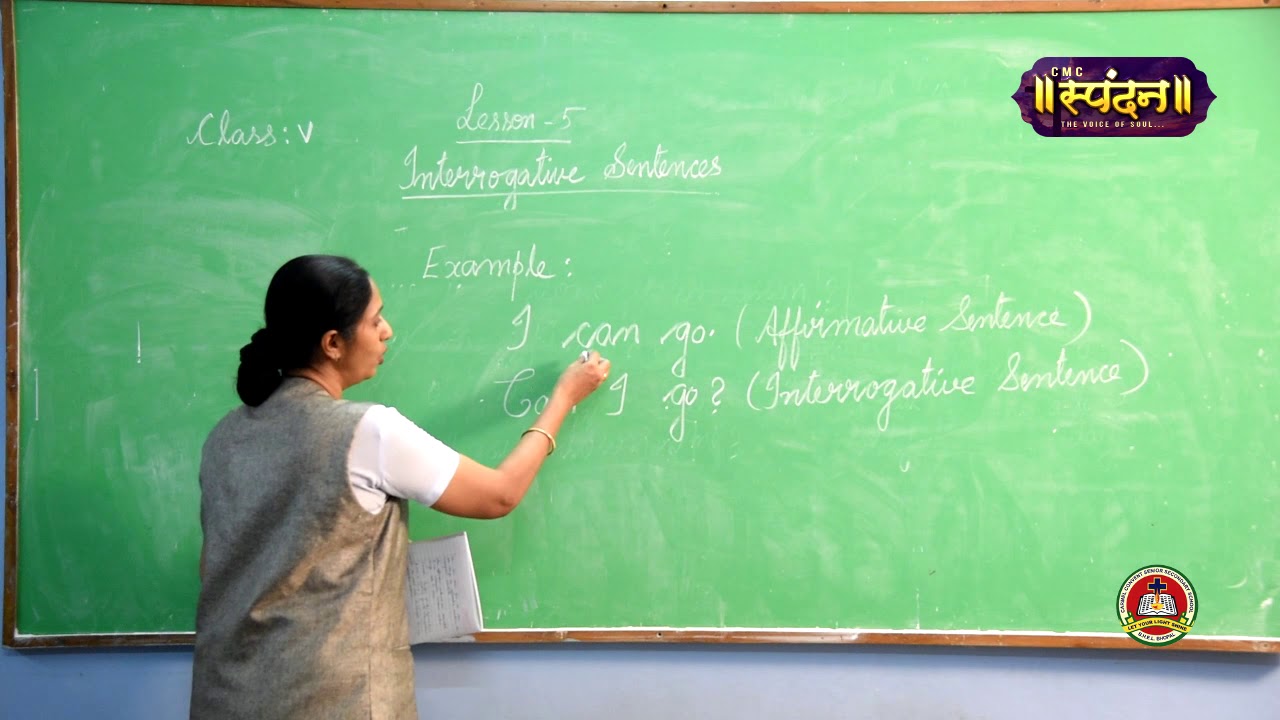 CMC
॥स्पंदन॥
THE VOICE OF SOUL...
Class: V
Lesson - 5
Interrogative Sentences
Example:
I can go. (Affirmative Sentence)
I go? (Interrogative Sentence)
CARMEL CONVENT SENIOR SECONDARY SCHOOL
LET YOUR LIGHT SHINE
B.H.E.L. BHOPAL